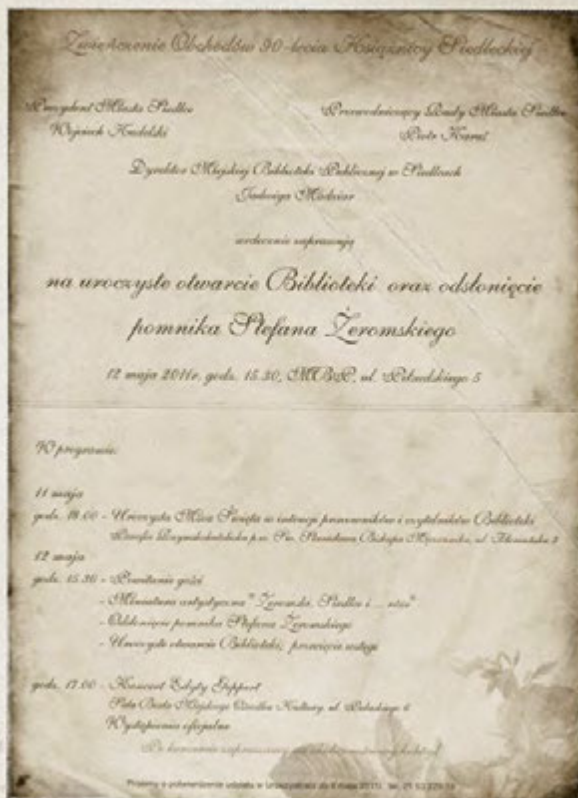 Zwieńczenie Obchodów 90-lecia Książnicy Siedleckiej
Prezydent Miasta Siedlce
Wojciech Kudelski
Przewodniczący Rady Miasta Siedlce
Piotr Karaś
Dyrektor Miejskiej Biblioteki Publicznej w Siedlcach
Jadwiga Madziar
serdecznie zapraszają
na uroczyste otwarcie Biblioteki oraz odsłonięcie
pomnika Stefana Żeromskiego
12 maja 2011r. godz. 15.30, MBP, ul. Piłsudskiego 5
W programie:
11 maja
godz. 18.00 - Uroczysta Msza Święta w intencji pracowników i czytelników Biblioteki
Parafia Rzymskokatolicka p.w. Św. Stanisława Biskupa Męczennika, ul.
12 maja
godz. 15.30 - Powitanie gości
- Miniatura artystyczna "Żeromski, Siedlce i ...
- Odsłonięcie pomnika Stefana Żeromskiego
- Uroczyste otwarcie Biblioteki, przecięcie wstęgi
godz. 17.00 - Koncert Edyty Geppert
Sala Miejskiego Ośrodka Kultury, ul. Pułaskiego 6
Wystąpienia oficjalne
Po koncercie zapraszamy na
Prosimy o potwierdzenie udziału w uroczystości do 6 maja 2011r. tel. 25